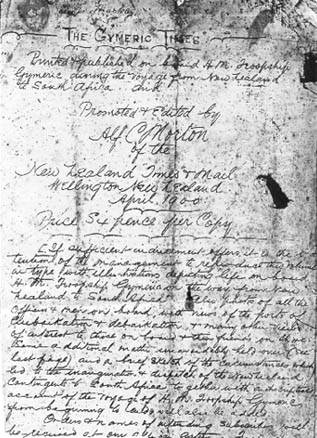 Murray
THE GYMERIC TIMES
Printed & published on board H.M. Troopship
Gymeric during the voyage from New Zealand
to South Africa and
Promoted & Edited by
Alf. C. Morton
of the
New Zealand Times & Mail
Wellington New Zealand.
April 1900
Price Sixpence per Copy
If sufficient inducement offers it is the in-
tention of the management to reproduce this
in type with illustrations depicting life on board
H.M. Troopship Gymeric on the way from New
Zealand to South Africa also photos of all the
officers & men on board, with news of the port of
embarkation & debarkation, & many other
of interest to those on board & their friends
last page) and a brief sketch of the circumstances which
led to the inauguration & despatch of the
Contingents to South Africa together with a
account of the voyage of H.M. Troopship Gymeric
from beginning to end will also be added.
Orders & names of intending subscribers will
be received at our